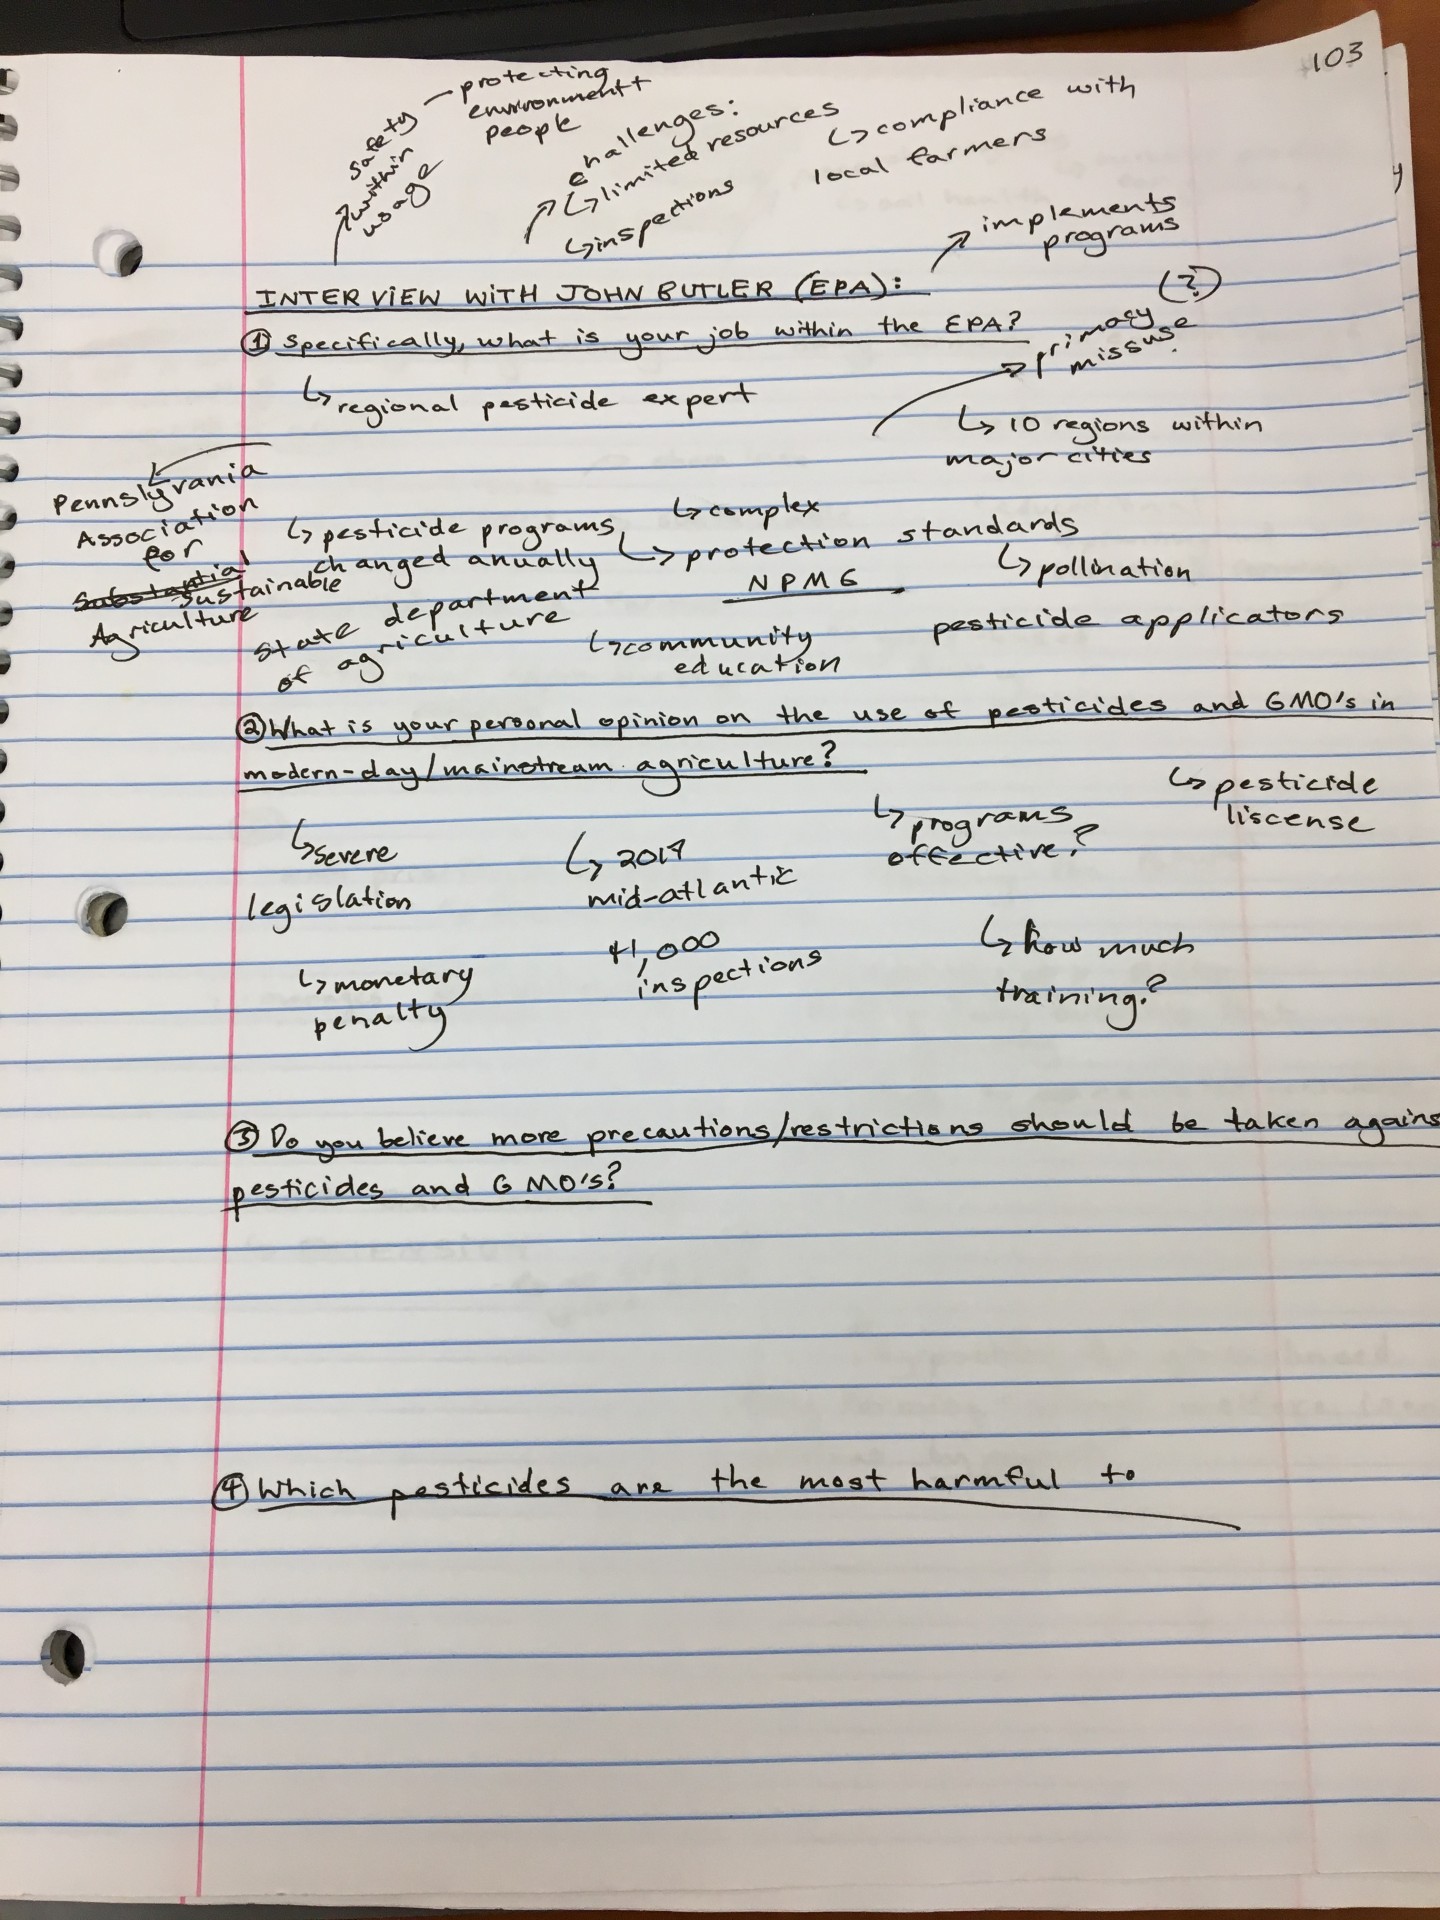 103
safety — protecting
within environment +
usage people
challenges:
↳ limited resources
↳ inspections
↳ compliance with
local farmers
implements
programs
INTERVIEW WITH JOHN BUTLER (EPA):
(?)
① Specifically, what is your job within the EPA?
primacy
missuse
↳ regional pesticide expert
↳ 10 regions within
major cities
Pennslyvania
Association
for
Substantial
Sustainable
Agriculture
↳ pesticide programs
changed anually
state department
of agriculture
↳ complex
↳ protection standards
NPMG
↳ pollination
↳ community
education
pesticide applicators
② What is your personal opinion on the use of pesticides and GMO's in
modern-day/mainstream agriculture?
↳ severe
legislation
↳ monetary
penalty
↳ 2017
mid-atlantic
41,000
inspections
↳ programs
effective?
↳ pesticide
liscense
↳ how much
training?
③ Do you believe more precautions/restrictions should be taken agains
pesticides and GMO's?
④ Which pesticides are the most harmful to